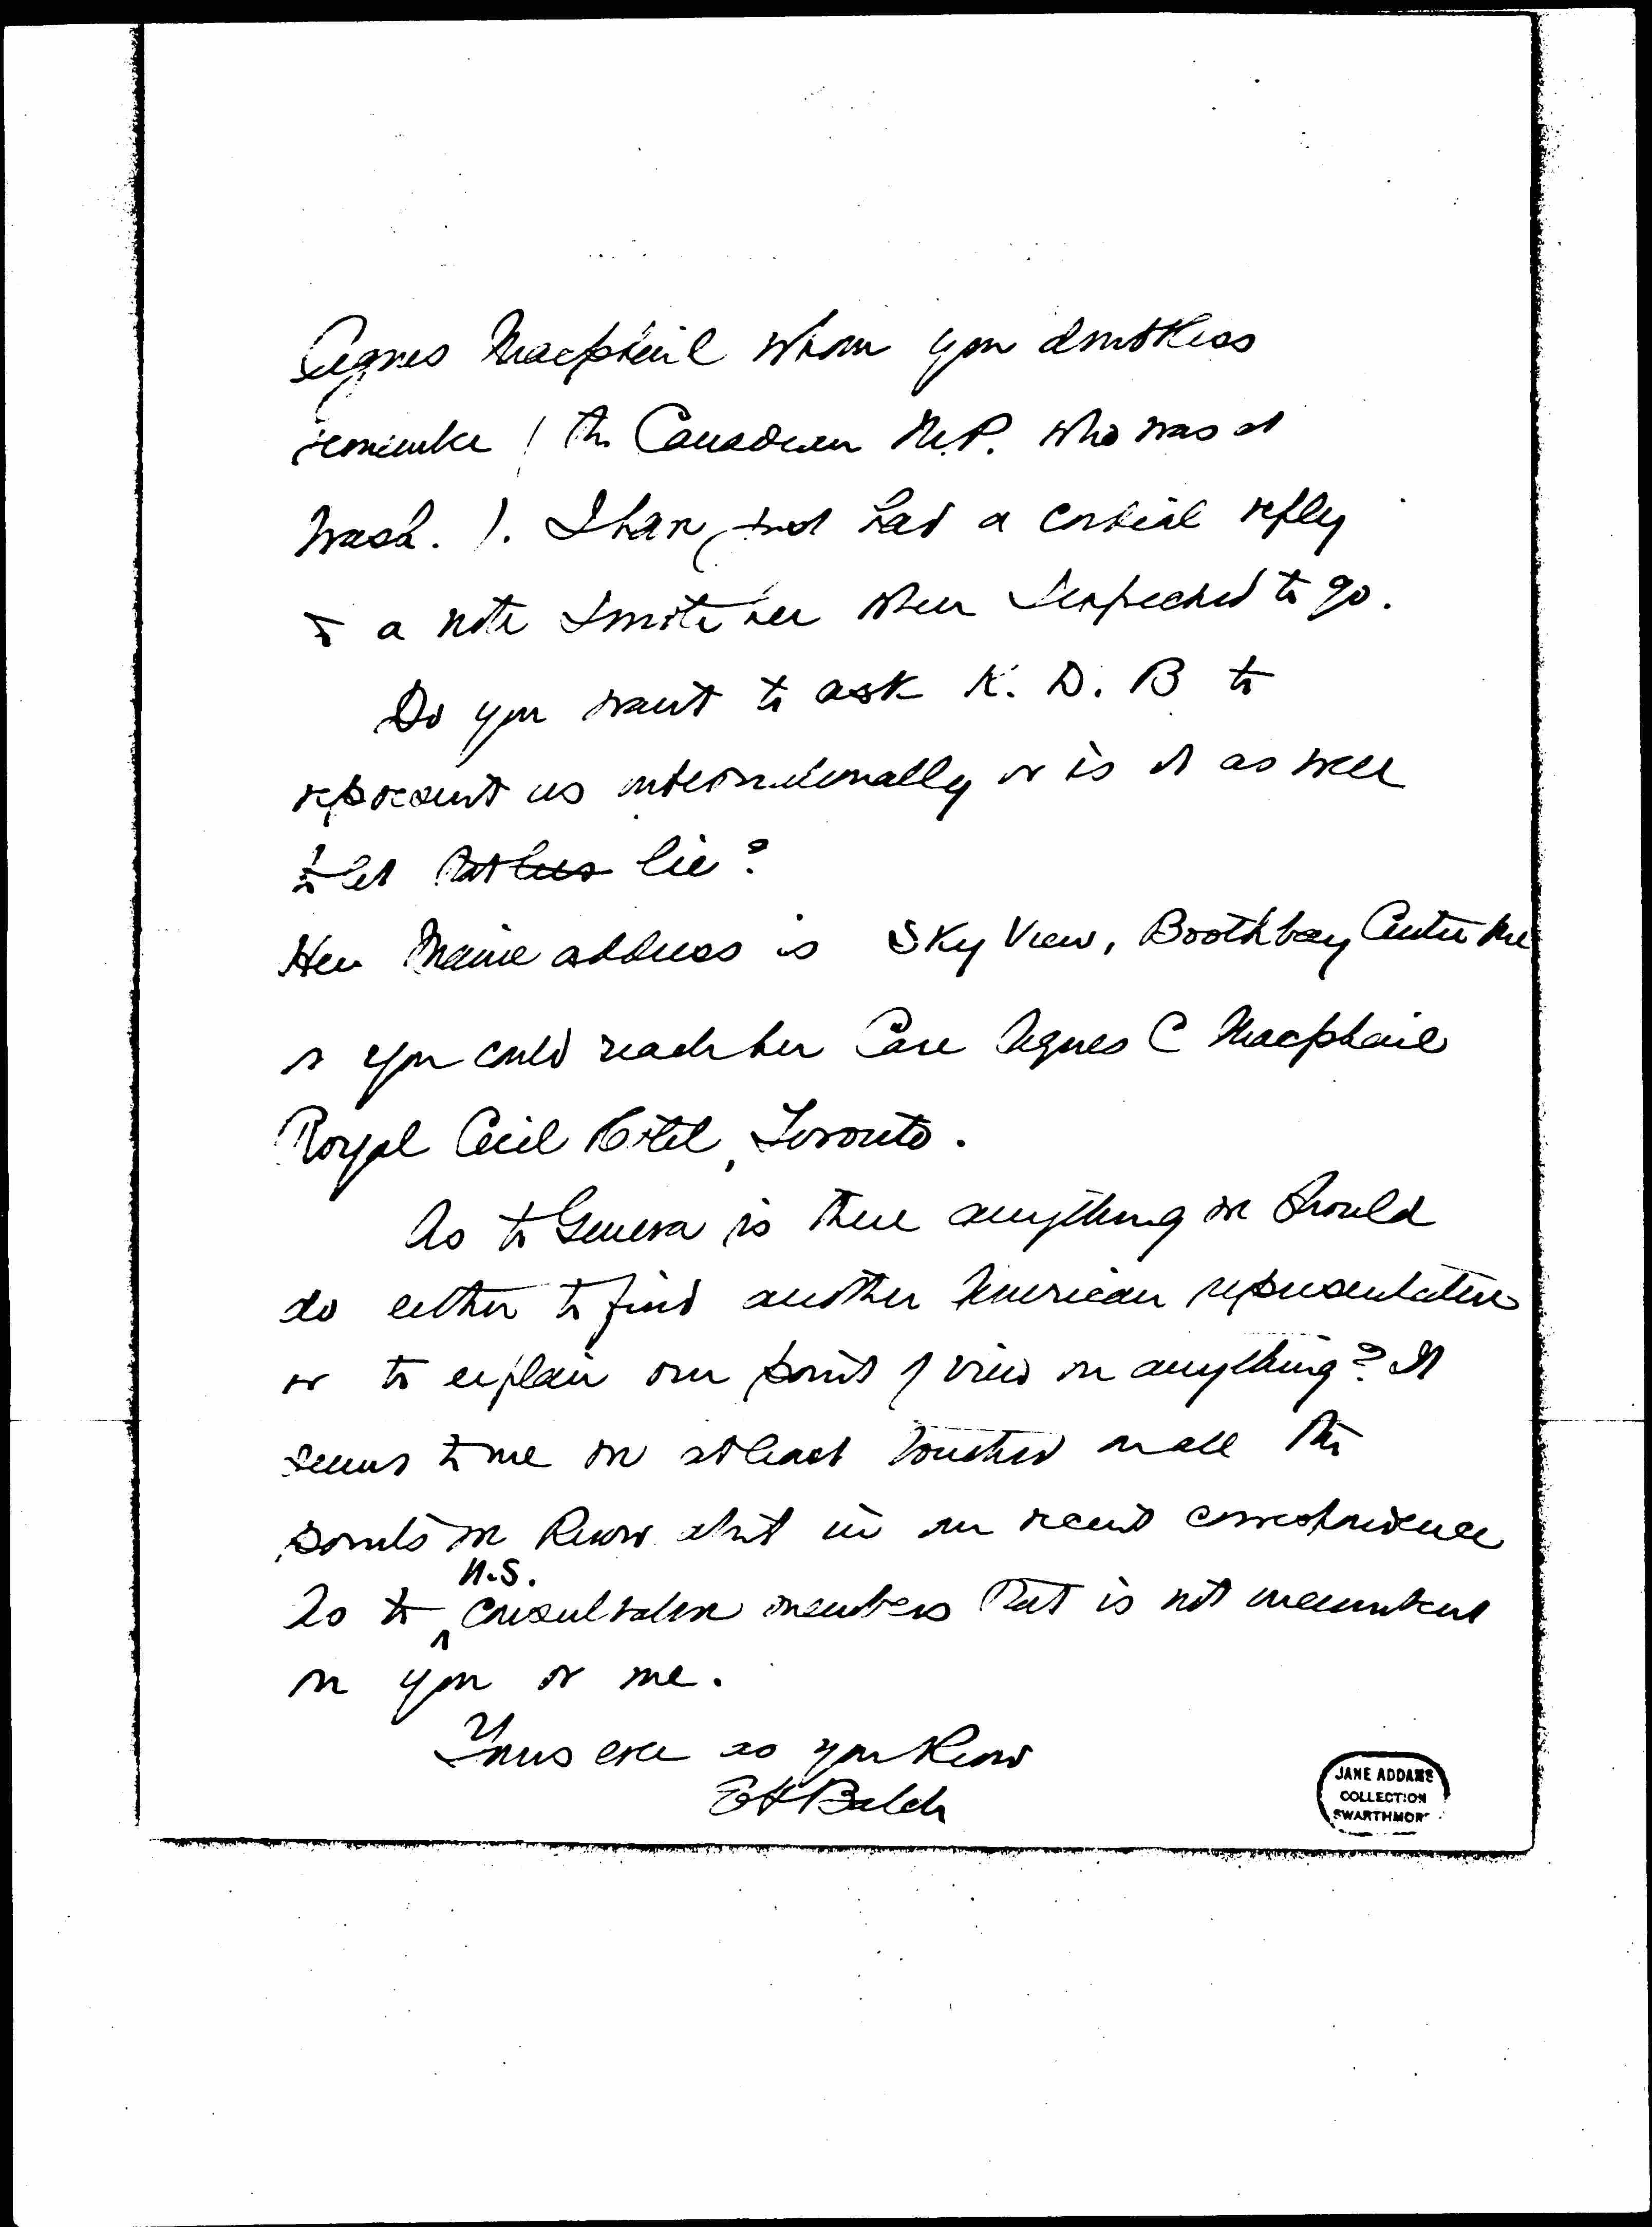 Agnes Macphail whom you doubtless
remember (the Canadian M.P. who was at
Wash.). I have just had a cordial reply
to a note I wrote her when I expected to go.
Do you want to ask K. D. B to
represent us internationally or is it as well
to let lie?
Her Maine address is Sky View, Boothbay Center Me
or you could reach her Care Agnes C Macphail
Royal Cecil Hotel, Toronto.
As to Geneva is there anything we should
do either to find another American representative
or to explain our point of view on anything? It
seems to me we at least touched on all the
points we know abt in our recent correspondence
As to consultative members that is not incumbent
U.S.
on you or me.
Yours ever as you know
EGBalch
JANE ADDAMS
COLLECTION
SWARTHMOR